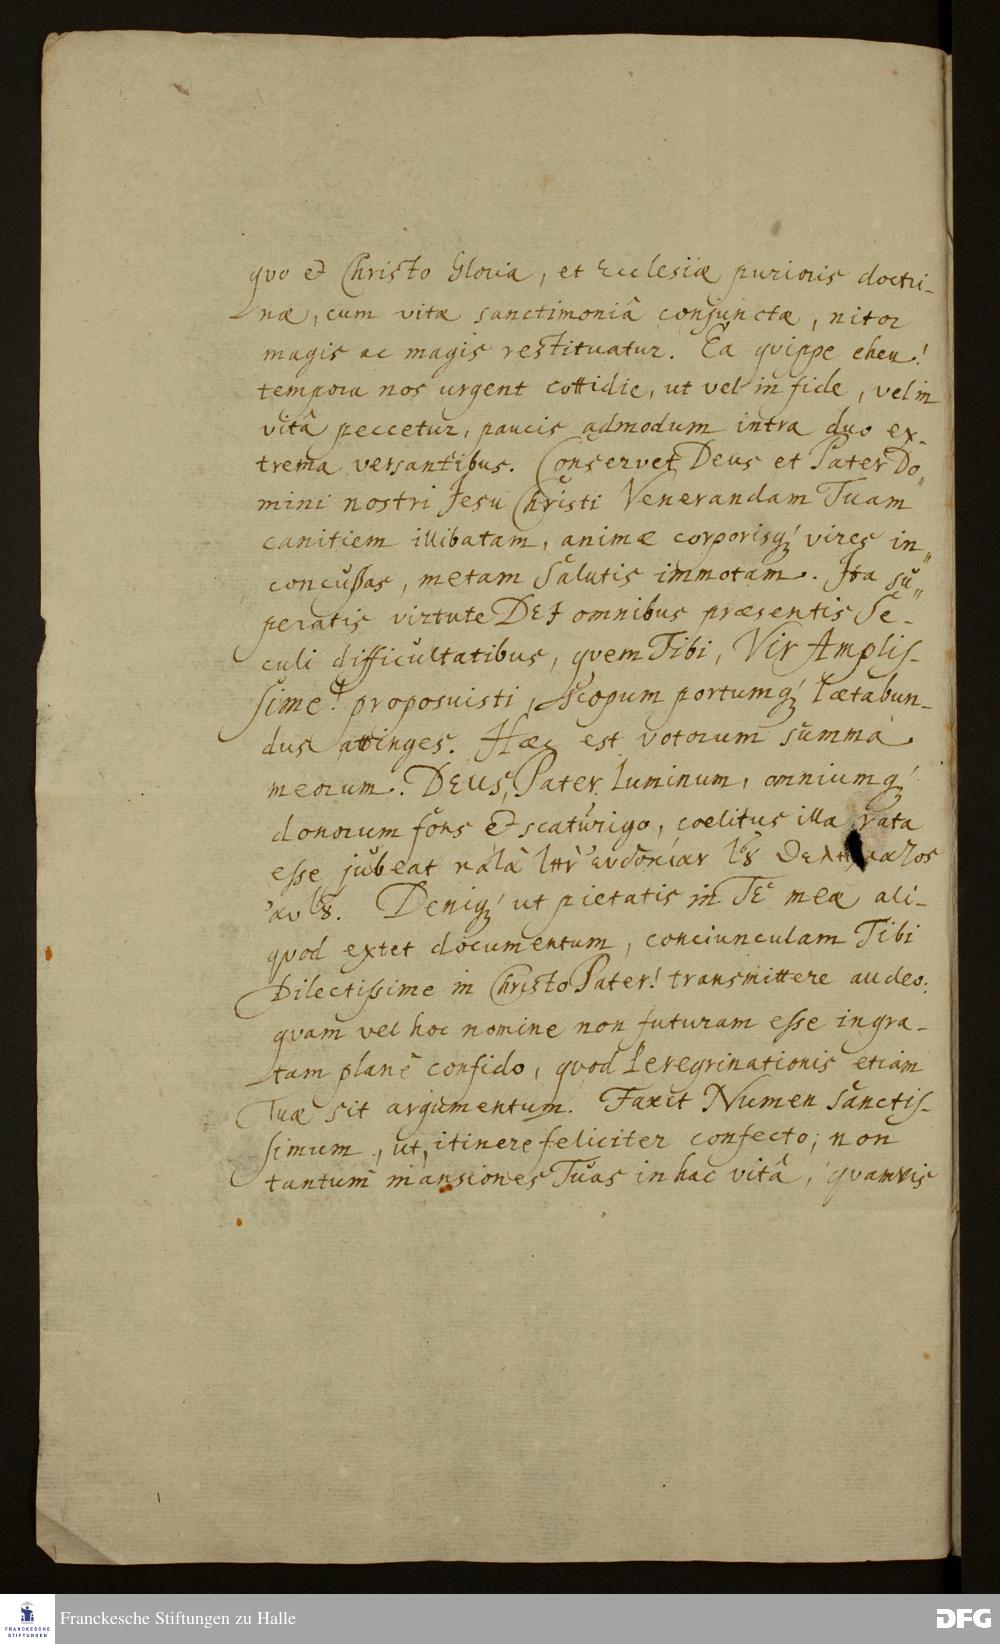 qvo et Christo Gloria, et Ecclesiæ purioris doctri-
næ, cum vitæ sanctimoniâ conjunctæ, nitor
magis ac magis restituatur. Ea qvippe eheu!
tempora nos urgent cottidie, ut vel in fide, vel in
vitâ peccetur, paucis admodum intra duo ex-
trema versantibus. Conservet Deus et Pater Do-
mini nostri Jesu Christi Venerandam Tuam
canitiem illibatam, animæ corporisq́ vires in-
concußas, metam Salutis immotam. Ita su-
peratis virtute DEI omnibus præsentis Se-
culi difficultatibus, qvem Tibi, Vir Amplis-
sime! proposuisti, scopum portumq́ lætabun-
dus attinges. Hæc est votorum summa
meorum. DEUS, Pater luminum, omniumq́
donorum fons et scaturigo, coelitus illa rata
esse jubeat κατὰ τὴν ἐυδοκίαν τȣ͂ θελήματος
ἀυτȣ͂. Deniq́ ut pietatis in Te meæ ali-
qvod extet documentum, conciunculam Tibi
Dilectissime in Christo Pater! transmittere audeo:
qvam vel hoc nomine non futuram esse ingra-
tam planè confido, qvod Peregrinationis etiam
Tuæ sit argumentum. Faxit Numen sanctis-
simum, ut, itinere feliciter confecto, non
tantum mansiones Tuas in hac vitâ, qvamvis
FRANCKESCHE
STIFTUNGEN
Franckesche Stiftungen zu Halle
DFG